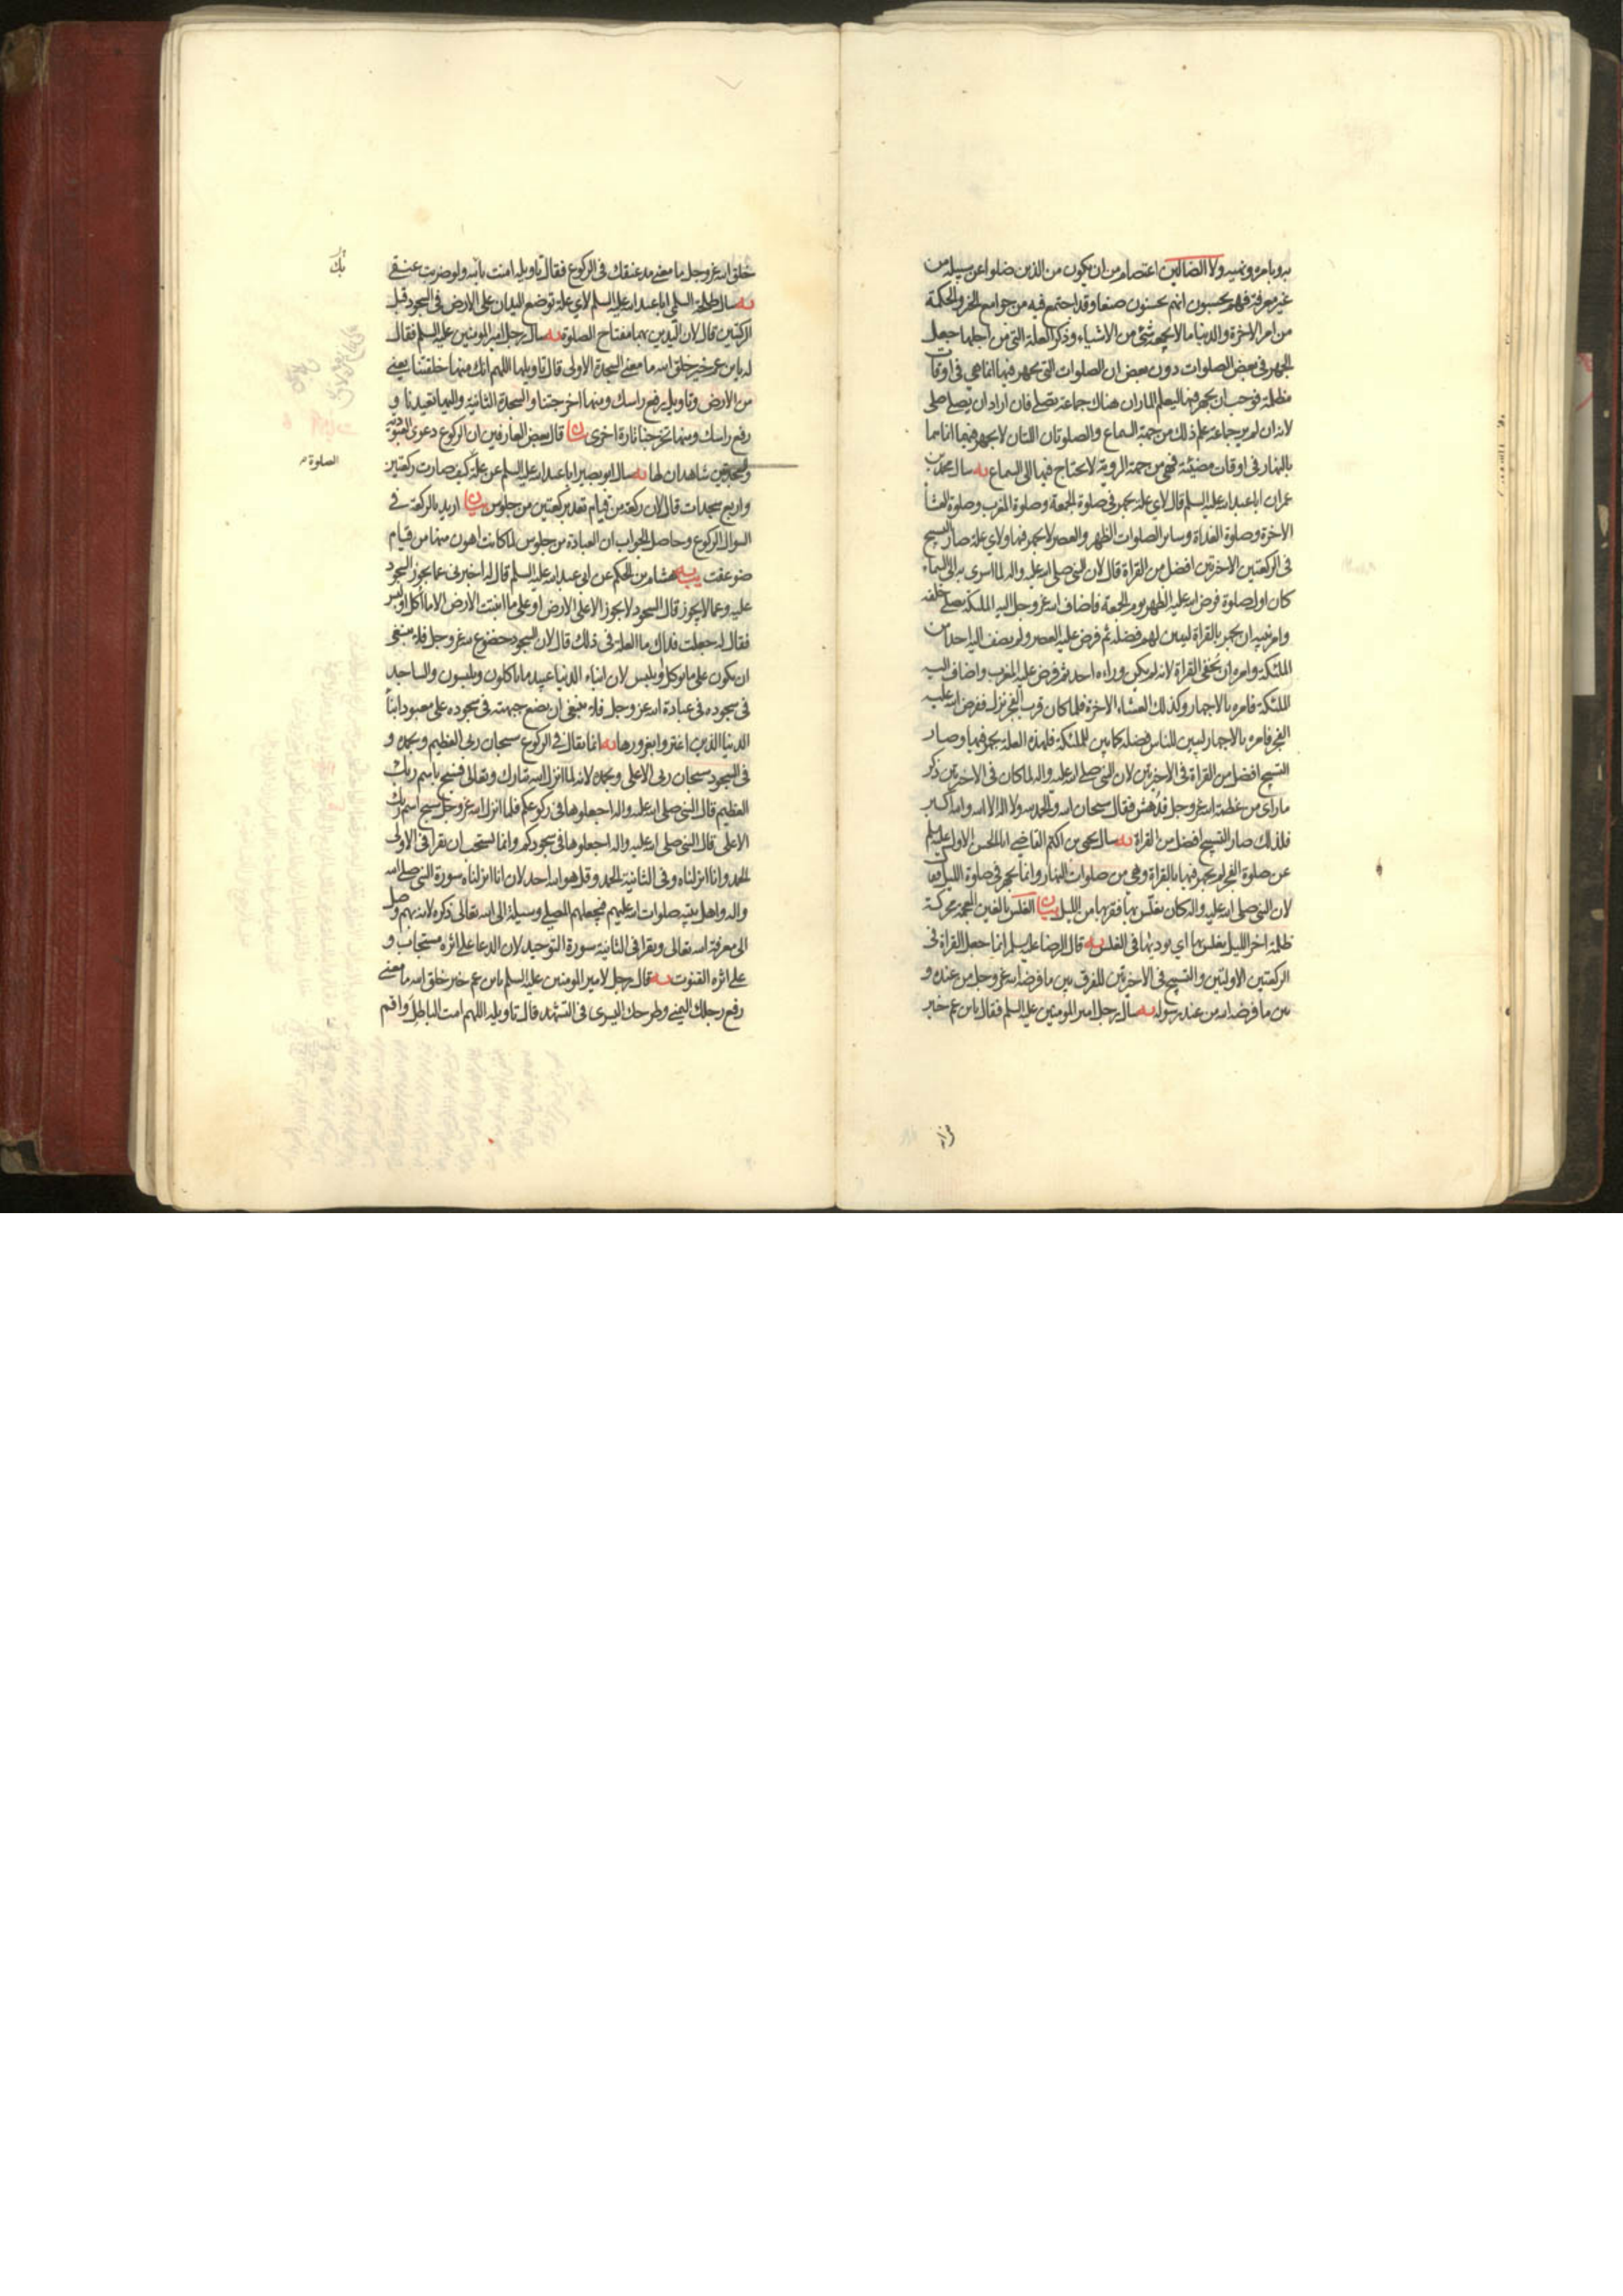 به وبامره ونهيه ولا الضالين اعتصام من ان يكون من الذين ضلوا عن سبيله من
غير معرفة فهم يحسبون انهم يحسنون صنعا وقد اجتمع فيه من جوامع الخير والحكمة
من امر الاخرة والدنيا ما لا يجمعه شئ من الاشياء وذكر العلة التي من اجلها جعل
الجهر في بعض الصلوات دون بعض ان الصلوات التي يجهر فيها انما هي في اوقات
مظلمة فوجب ان يجهر فيها ليعلم المار ان هناك جماعة تصلي فان اراد ان يصلي صلى
لانه ان لم ير جماعة علم ذلك من جهة السماع والصلوتان اللتان لا يجهر فيهما انما هما
بالنهار في اوقات مضيئة فهي من جهة الروية لا يحتاج فيها الى السماع يه سال محمد بن
عمران ابا عبد الله عليه السلم فقال لاي علة يجهر في صلوة الجمعة وصلوة المغرب وصلوة العشا
الاخرة وصلوة الغداة وساير الصلوات الظهر والعصر لا يجهر فيها ولاي علة صار التسبيح
في الركعتين الاخرتين افضل من القراة قال لان النبي صلى الله عليه واله لما اسرى به الى السماء
كان اول صلوة فرض الله عليه الظهر يوم الجمعة فاضاف الله عز وجل اليه الملئكة يصلي خلفه
وامر نبيه ان يجهر بالقراة ليبين لهم فضله ثم فرض عليه العصر ولم يضف اليه احدا من
الملئكة وامره ان يخفى القراة لانه لم يكن وراءه احد ثم فرض عليه المغرب واضاف اليه
الملئكة فامره بالاجهار وكذلك العشاء الاخرة فلما كان قرب الفجر نزل ففرض الله عليه
الفجر فامره بالاجهار ليبين للناس فضله كما بين للملئكة فلهذه العلة يجهر فيها وصار
التسبيح افضل من القراة في الاخرتين لان النبي صلى الله عليه واله لما كان في الاخرتين ذكر
ما راى من عظمة الله عز وجل فدهش فقال سبحان الله والحمد لله ولا اله الا الله والله اكبر
فلذلك صار التسبيح افضل من القراة يه سال يحيى بن اكثم القاضي ابا الحسن الاول عليه السلم
عن صلوة الفجر لم يجهر فيها بالقراة وهي من صلوات النهار وانما يجهر في صلوة الليل فقال
لان النبي صلى الله عليه واله كان يغلس بها فقربها من الليل بيان الغلس بالغين المعجمة محركة
ظلمة اخر الليل يغلس بها اي يوديها في الغلس يه قال الرضا عليه السلم انما جعل القراة في
الركعتين الاولتين والتسبيح في الاخرتين للفرق بين ما فرضه الله عز وجل من عنده و
بين ما فرضه الله من عند رسوله يه سال رجل امير المومنين عليه السلم فقال يا بن عم خير
خلق الله عز وجل ما معنى مد عنقك في الركوع فقال تاويله امنت بالله ولو ضربت عنقي
يه سال طلحة السلمى ابا عبد الله عليه السلم لاي علة توضع اليدان على الارض في السجود قبل
الركبتين قال لان اليدين بهما مفتاح الصلوة يه سال رجل امير المومنين عليه السلم فقال
له يا بن عم خير خلق الله ما معنى السجدة الاولى قال تاويلها اللهم انك منها خلقتنا يعني
من الارض وتاويل رفع راسك ومنها اخرجتنا والسجدة الثانية واليها تعيدنا و
رفع راسك ومنها تخرجنا تارة اخرى بيان قال بعض العارفين ان الركوع دعوى العبودية
والسجدتين شاهدان لها يه سال ابو بصير ابا عبد الله عليه السلم عن علة كيف صارت ركعتين
الصلوة
واربع سجدات قال لان ركعة من قيام تعد بركعتين من جلوس بيان اريد بالركعة في
السوال الركوع وحاصل الجواب ان العبادة من جلوس لما كانت اهون منها من قيام
ضوعفت يب يه هشام بن الحكم عن ابي عبد الله عليه السلم قال له اخبرني عما يجوز السجود
عليه وعما لا يجوز قال السجود لا يجوز الا على الارض او على ما انبتت الارض الا ما اكل او لبس
فقال له جعلت فداك ما العلة في ذلك قال لان السجود خضوع لله عز وجل فلا ينبغي
ان يكون على ما يوكل ويلبس لان ابناء الدنيا عبيد ما ياكلون ويلبسون والساجد
في سجوده في عبادة الله عز وجل فلا ينبغي ان يضع جبهته في سجوده على معبود ابناء
الدنيا الذين اغتروا بغرورها يه انما يقال في الركوع سبحان ربي العظيم وبحمده و
في السجود سبحان ربي الاعلى وبحمده لانه لما انزل الله تبارك وتعالى فسبح باسم ربك
العظيم قال النبي صلى الله عليه واله اجعلوها في ركوعكم فلما انزل الله عز وجل سبح اسم ربك
الاعلى قال النبي صلى الله عليه واله اجعلوها في سجودكم وانما يستحب ان يقرا في الاولى
الحمد وانا انزلناه وفي الثانية الحمد وقل هو الله احد لان انا انزلناه سورة النبي صلى الله
واله واهل بيته صلوات الله عليهم فيجعلهم المصلي وسيلة الى الله تعالى ذكره لانه بهم وصل
الى معرفة الله تعالى ويقرا في الثانية سورة التوحيد لان الدعا على اثره مستجاب و
على اثره القنوت يه قال رجل لامير المومنين عليه السلم يا بن عم خير خلق الله ما معنى
رفع رجلك اليمنى وطرحك اليسرى في التشهد قال تاويله اللهم امت الباطل واقم